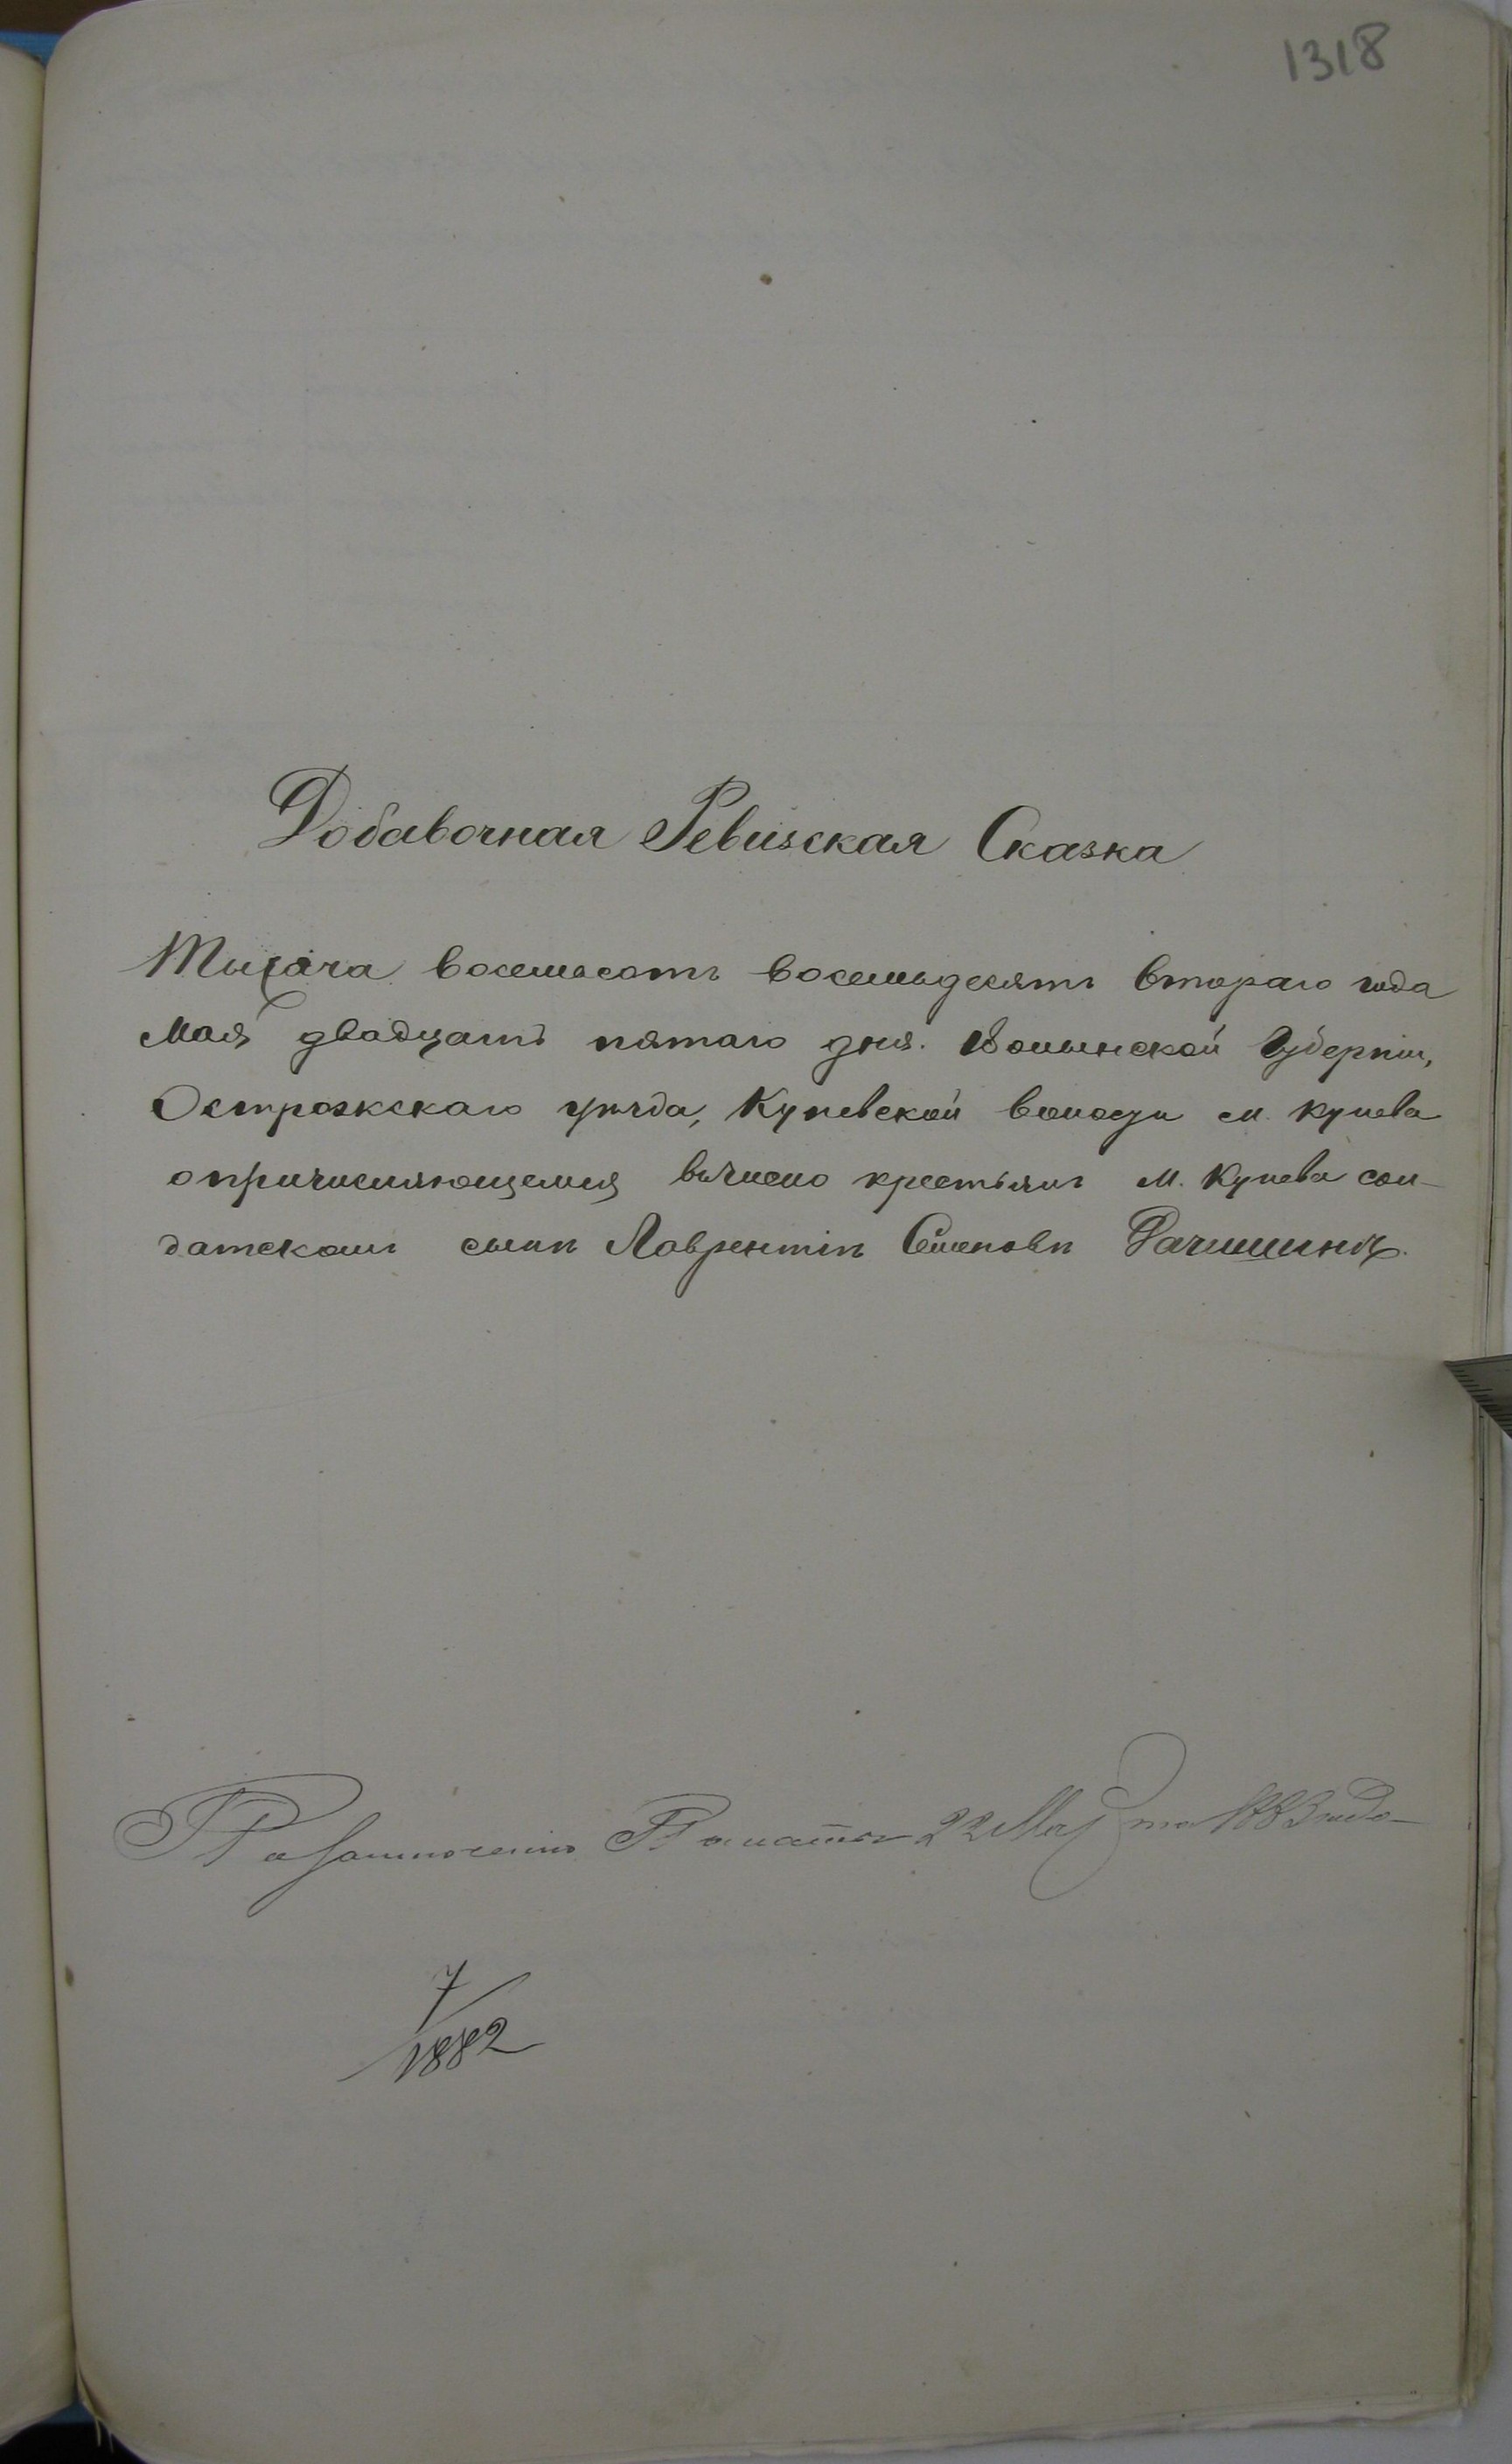 1318
Добавочная Ревизская Сказка
Тысяча восемьсотъ восемьдесятъ втораго года
Мая двадцать пятаго дня. Волынской Губерніи,
Острожскаго уѣзда, Куневской волости м. Кунева
о причисляющемся въ число крестьянъ м. Кунева сол-
датскомъ сынѣ Лаврентіѣ Семеновѣ
По заключенію Палаты 22 Мая 1883 года
7/1882